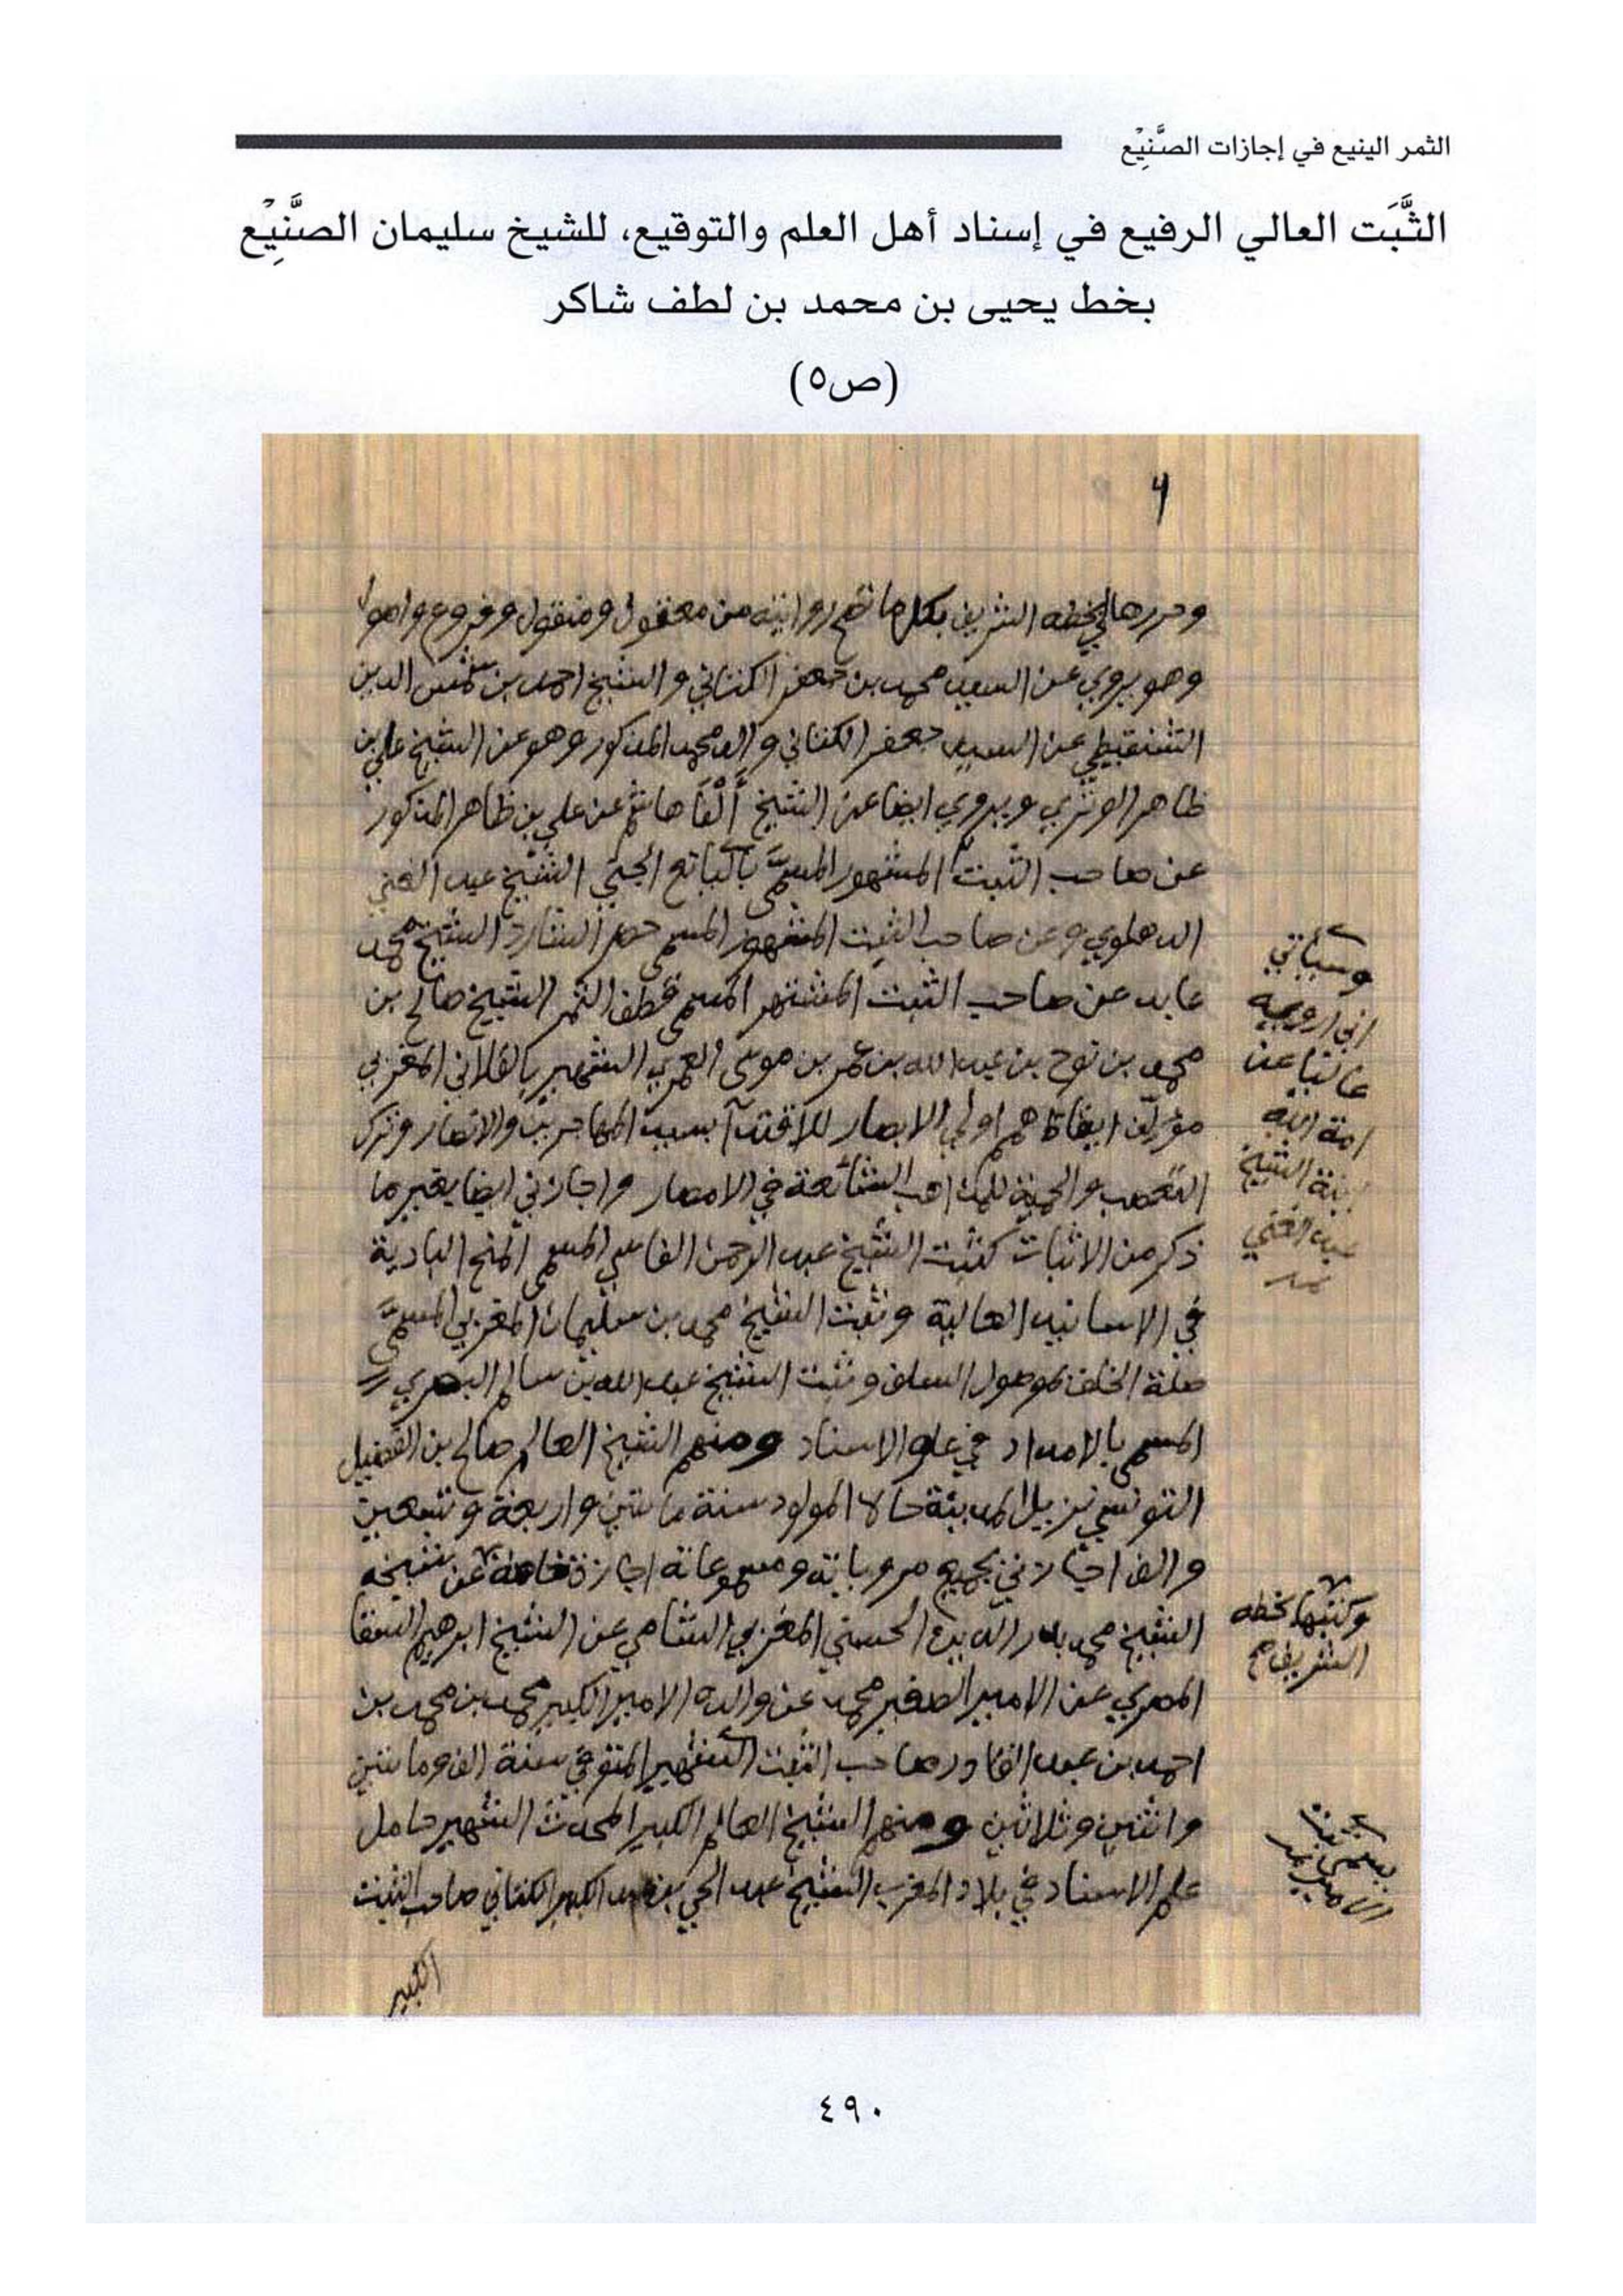 الثمر الينيع في إجازات الصَّنِيْع
الثَّبَت العالي الرفيع في إسناد أهل العلم والتوقيع، للشيخ سليمان الصَّنِيْع
بخط يحيى بن محمد بن لطف شاكر
(ص٥)
وحررها لي بخطه الشريف بكل ما تصح روايته من معقول ومنقول وفروع واصول
وهو يروي عن السيد محمد بن جعفر الكتاني والشيخ احمد بن شمس الدين
الشنقيطي عن السيد جعفر الكتاني والد محمد المذكور وهو عن الشيخ علي بن
ظاهر الوتري ويروي ايضا عن الشيخ أَلْفَا هاشم عن علي بن ظاهر المذكور
عن صاحب الثبت المشهور المسمَّى باليانع الجني الشيخ عبد الغني
الدهلوي وعن صاحب الثبت المشهور المسمى حصر الشارد الشيخ محمد
عابد عن صاحب الثبت المشتهر المسمى قطف الثمر الشيخ صالح بن
محمد بن نوح بن عبد الله بن عمر بن موسى العمري الشهير بالفلاني المغربي
مؤلف ايقاظ همم اولي الابصار للاقتدآ بسيد المهاجرين والانصار وترك
التعصب والحمية للمذاهب الشائعة في الامصار واجازني ايضا بغير ما
ذكر من الاثبات كثبت الشيخ عبد الرحمن الفاسي المسمى المنح البادية
في الاسانيد العالية وثبت الشيخ محمد بن سليمان المغربي المسمَّى
صلة الخلف بموصول السلف وثبت الشيخ عبد الله بن سالم البصري
المسمى بالامداد في علو الاسناد ومنهم الشيخ العالم صالح بن الفضيل
التونسي نزيل المدينة حالا المولود سنة مائتين واربعة وتسعين
والف اجازني بجميع مروياته ومسموعاته اجازة عن شيخه
الشيخ محمد بدر الدين الحسني المغربي الشامي عن الشيخ ابرهيم السقا
المصري عن الامير الصغير محمد عن والده الامير الكبير محمد بن محمد بن
احمد بن عبد القادر صاحب الثبت الشهير المتوفي سنة الف ومائتين
واثنين وثلاثين ومنهم الشيخ العالم الكبير المحدث الشهير حامل
علم الاسناد في بلاد المغرب الشيخ عبد الحي بن عبد الكبير الكتاني صاحب الثبت
الكبير
وسيأتي
اني ارويه
عاليا عن
امة الله
ابنة الشيخ
عبد الغني
وكتبها بخطه
الشريف
٤٩٠